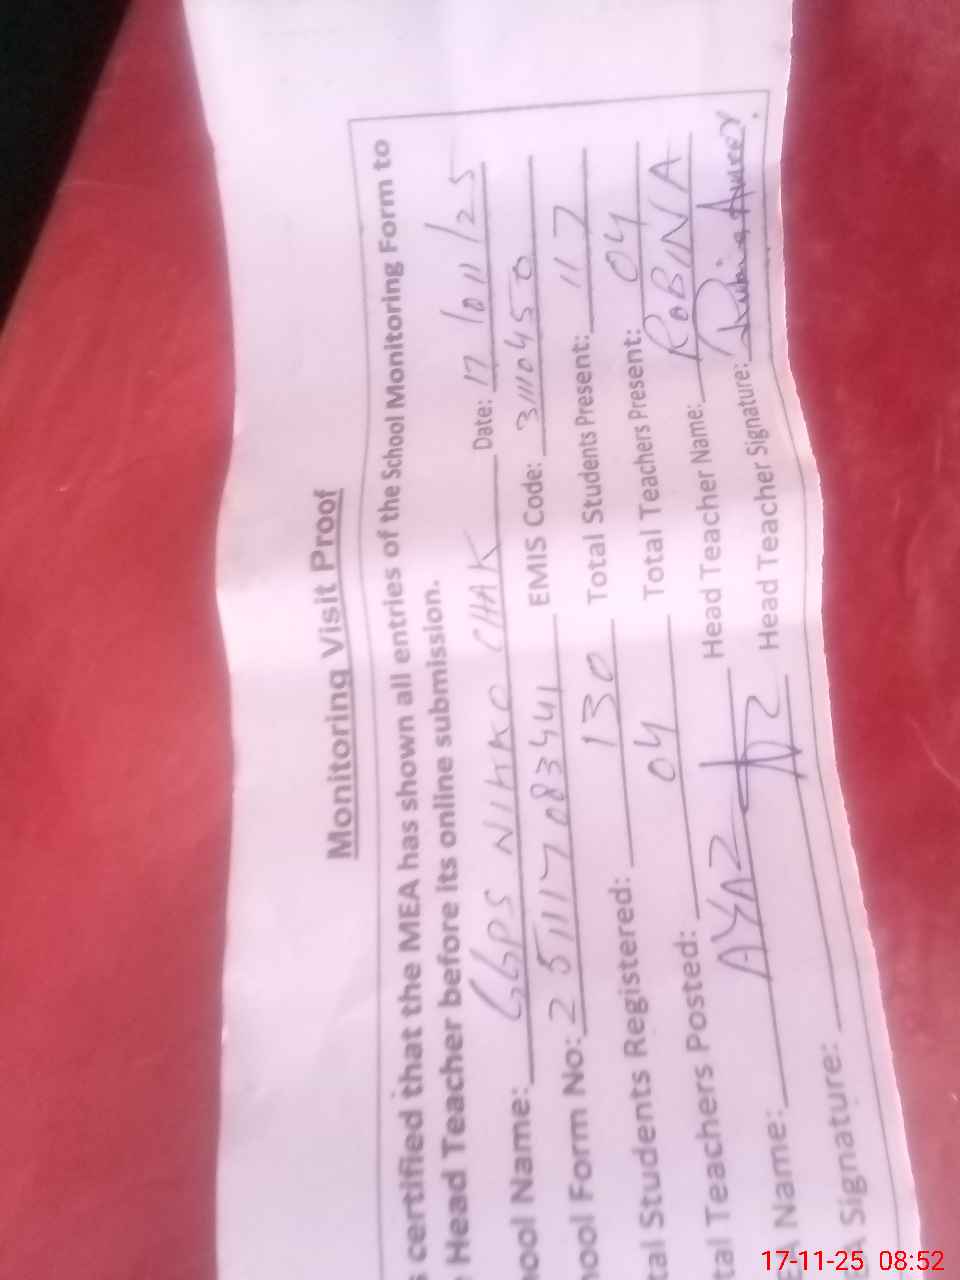 Monitoring Visit Proof
s certified that the MEA has shown all entries of the School Monitoring Form to
Head Teacher before its online submission.
hool Name: GGPS NIHKO CHAK Date: 17/011/25
hool Form No: 251117083441 EMIS Code: 31110450
tal Students Registered: 130 Total Students Present: 117
tal Teachers Posted: 04 Total Teachers Present: 04
EA Name: AYAZ Head Teacher Name: ROBINA
A Signature: Head Teacher Signature:
17-11-25 08:52